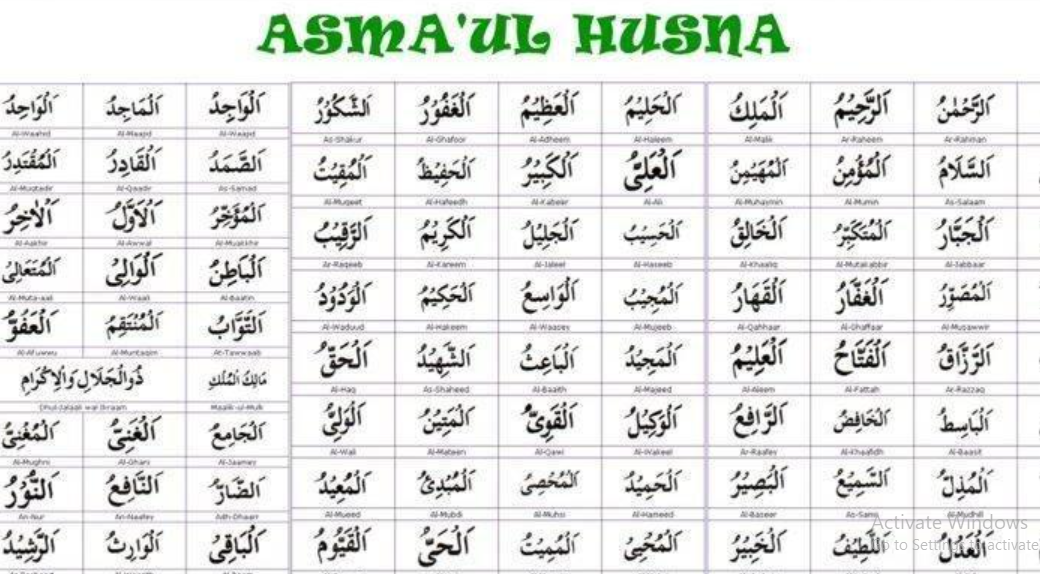 ASMA'UL HUSNA
اَلرَّحْمٰنُ اَلرَّحِيْمُ اَلْمَلِكُ
Al-Malik Ar-Raheem Ar-Rahman
اَلسَّلَامُ اَلْمُؤْمِنُ اَلْمُهَيْمِنُ
Al-Muhaymin Al-Mumin As-Salaam
اَلْجَبَّارُ اَلْمُتَكَبِّرُ اَلْخَالِقُ
Al-Khaaliq Al-Mutakabbir Al-Jabbaar
اَلْمُصَوِّرُ اَلْغَفَّارُ اَلْقَهَارُ
Al-Qahhaar Al-Ghaffaar Al-Musawwir
اَلرَّزَّاقُ اَلْفَتَّاحُ اَلْعَلِيْمُ
Al-Aleem Al-Fattah Ar-Razzaq
اَلْبَاسِطُ اَلْخَافِضُ اَلرَّافِعُ
Ar-Raafey Al-Khaafidh Al-Baasit
اَلْمُذِلُّ اَلسَّمِيْعُ اَلْبَصِيْرُ
Al-Baseer As-Sami Al-Mudhil
اَلْعَدْلُ اَللَّطِيْفُ اَلْخَبِيْرُ
اَلْحَلِيْمُ اَلْعَظِيْمُ اَلْغَفُوْرُ اَلشَّكُوْرُ
As-Shakur Al-Ghafoor Al-Adheem Al-Haleem
اَلْعَلِيُّ اَلْكَبِيْرُ اَلْحَفِيْظُ اَلْمُقِيْتُ
Al-Muqeet Al-Hafeedh Al-Kabeer Al-Ali
اَلْحَسِيْبُ اَلْجَلِيْلُ اَلْكَرِيْمُ اَلرَّقِيْبُ
Ar-Raqeeb Al-Kareem Al-Jaleel Al-Haseeb
اَلْمُجِيْبُ اَلْوَاسِعُ اَلْحَكِيْمُ اَلْوَدُوْدُ
Al-Waduud Al-Hakeem Al-Waasey Al-Mujeeb
اَلْمَجِيْدُ اَلْبَاعِثُ اَلشَّهِيْدُ اَلْحَقُّ
Al-Haq As-Shaheed Al-Baaith Al-Majeed
اَلْوَكِيْلُ اَلْقَوِىُّ اَلْمَتِيْنُ اَلْوَلِىُّ
Al-Wali Al-Mateen Al-Qawi Al-Wakeel
اَلْحَمِيْدُ اَلْمُحْصِىُ اَلْمُبْدِئُ اَلْمُعِيْدُ
Al-Mueed Al-Mubdi Al-Muhsi Al-Hameed
اَلْمُحْيِىُ اَلْمُمِيْتُ اَلْحَىُّ اَلْقَيُّوْمُ
اَلْوَاجِدُ اَلْمَاجِدُ اَلْوَاحِدُ
Al-Waahid Al-Maapd Al-Waapd
اَلصَّمَدُ اَلْقَادِرُ اَلْمُقْتَدِرُ
Al-Muqtadir Al-Qaadir As-Samad
اَلْمُؤَخِّرُ اَلْاَوَّلُ اَلْاٰخِرُ
Al-Aakhir Al-Awwal Al-Muakhhir
اَلْبَاطِنُ اَلْوَالِىُ اَلْمُتَعَالِىُ
Al-Muta-aali Al-Waali Al-Baatin
اَلتَّوَّابُ اَلْمُنْتَقِمُ اَلْعَفُوُّ
Al-Afuwwu Al-Muntaqim At-Tawwaab
مَالِكُ الْمُلْكِ ذُوالْجَلَالِ وَالْاِكْرَامِ
Dhul-Jalaali wal Ikraam Maalik-ul-Mulk
اَلْجَامِعُ اَلْغَنِىُّ اَلْمُغْنِىُ
Al-Mughni Al-Ghani Al-Jaamey
اَلضَّارُّ اَلنَّافِعُ اَلنُّوْرُ
An-Nur An-Naafey Adh-Dhaarr
اَلْبَاقِىُ اَلْوَارِثُ اَلرَّشِيْدُ
Activate Windows